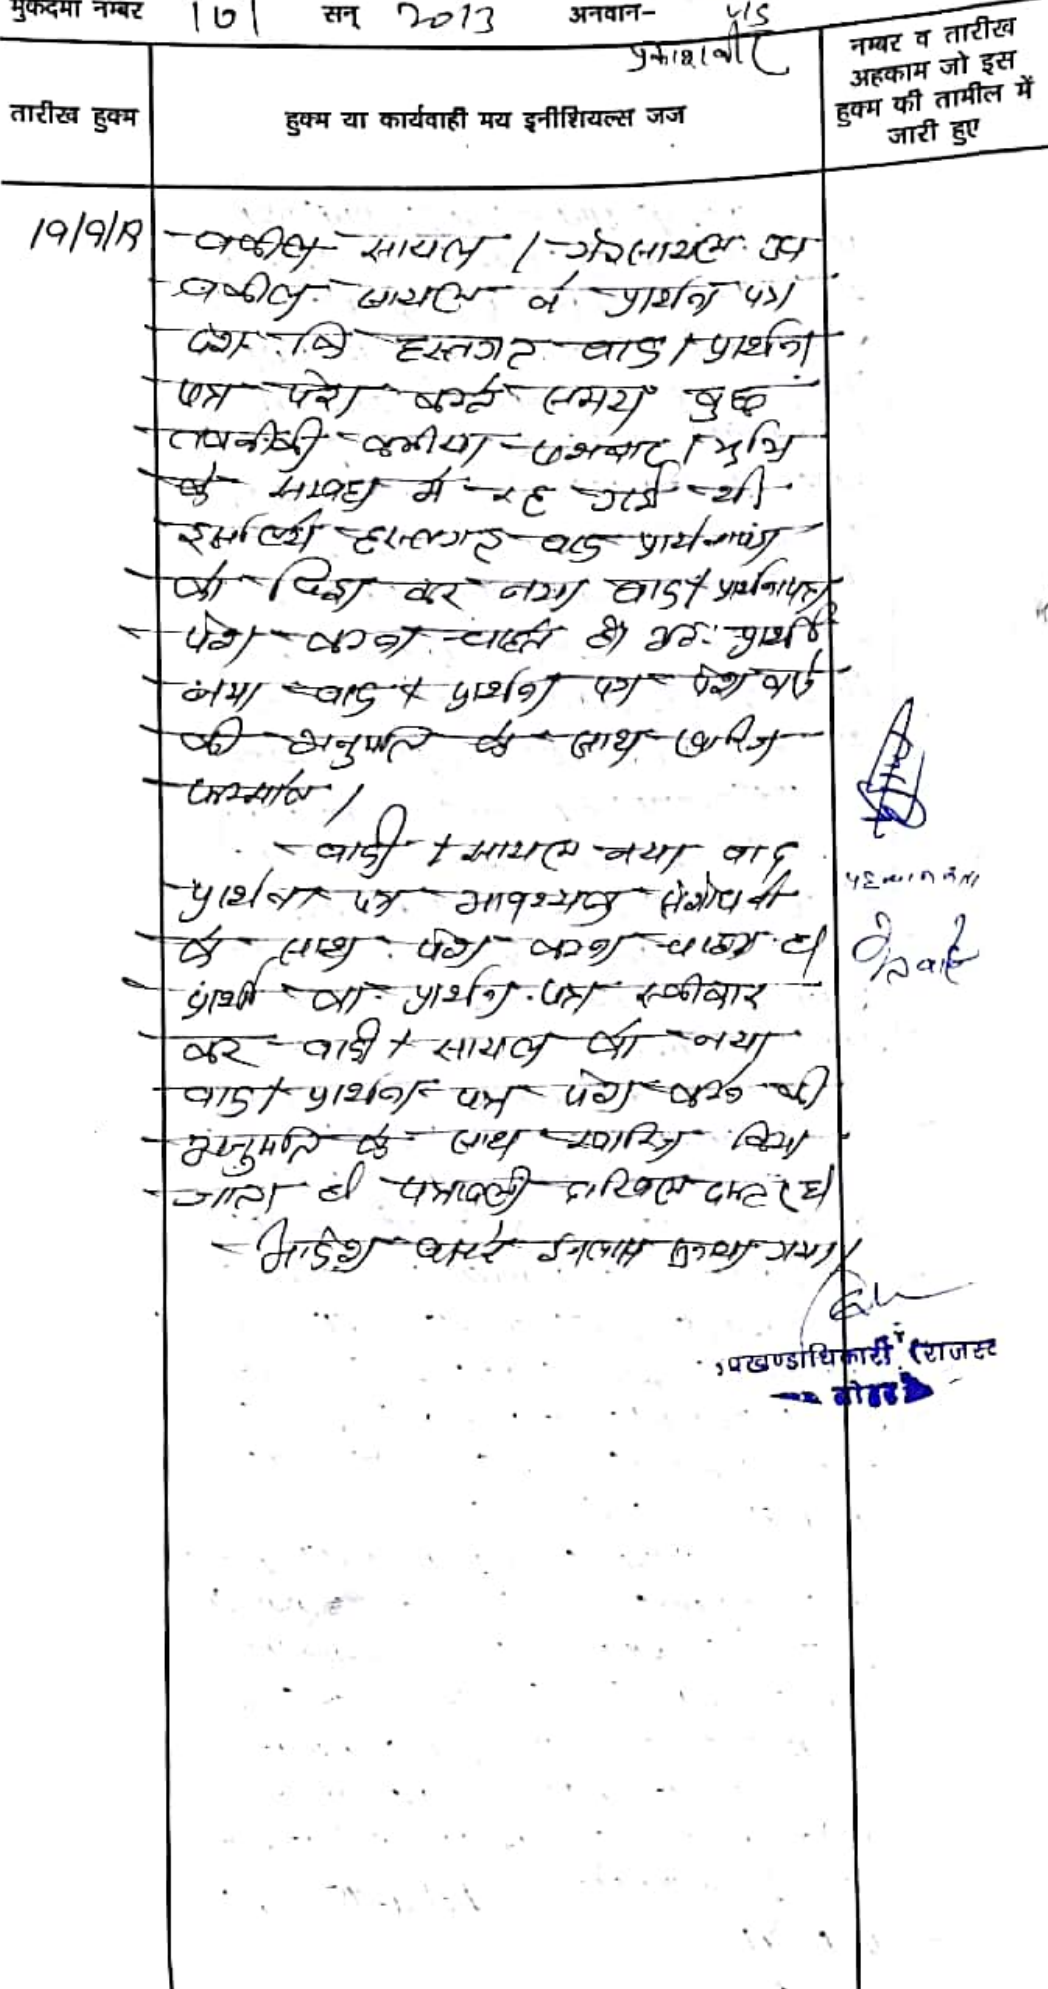 मुकदमा नम्बर 171 सन् 2013 अनवान- v/s
प्रकाशवीर
तारीख हुक्म
हुक्म या कार्यवाही मय इनीशियल्स जज
नम्बर व तारीख
अहकाम जो इस
हुक्म की तामील में
जारी हुए
19/9/19
वकील सायल / गैरसायल उप
वकील सायल ने प्रार्थना पत्र
पेश कि हस्तगत वाद/प्रार्थना
पत्र पेश करते समय कुछ
तकनीकी कमीया भूमि
के सम्बंध में रह गई थी
इसलिये हस्तगत वाद प्रार्थनापत्र
को विड्रा कर नया वाद/प्रार्थनापत्र
पेश करना चाहते है अतः प्रार्थी
नया वाद/प्रार्थना पत्र पेश करने
की अनुमति के साथ खारिज
फरमावे।
वादी/सायल नया वाद
प्रार्थना पत्र आवश्यक संशोधनों
के साथ पेश करना चाहता है
प्रार्थी का प्रार्थना पत्र स्वीकार
कर वादी/सायल को नया
वाद/प्रार्थना पत्र पेश करने की
अनुमति के साथ खारिज किया
जाता है पत्रावली दाखिल दफ्तर हो
आदेश सरे इजलास सुनाया गया।
उपखण्डाधिकारी (राजस्व
नोहर